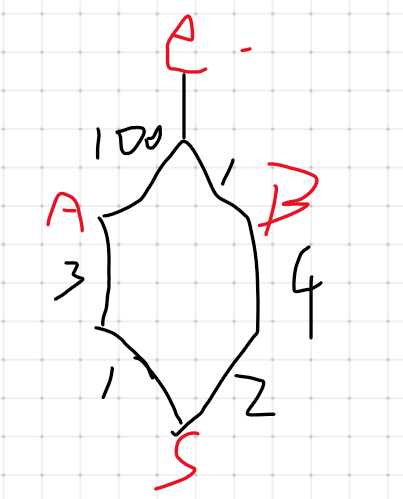 e
100
1
A
B
3
4
1
2
S